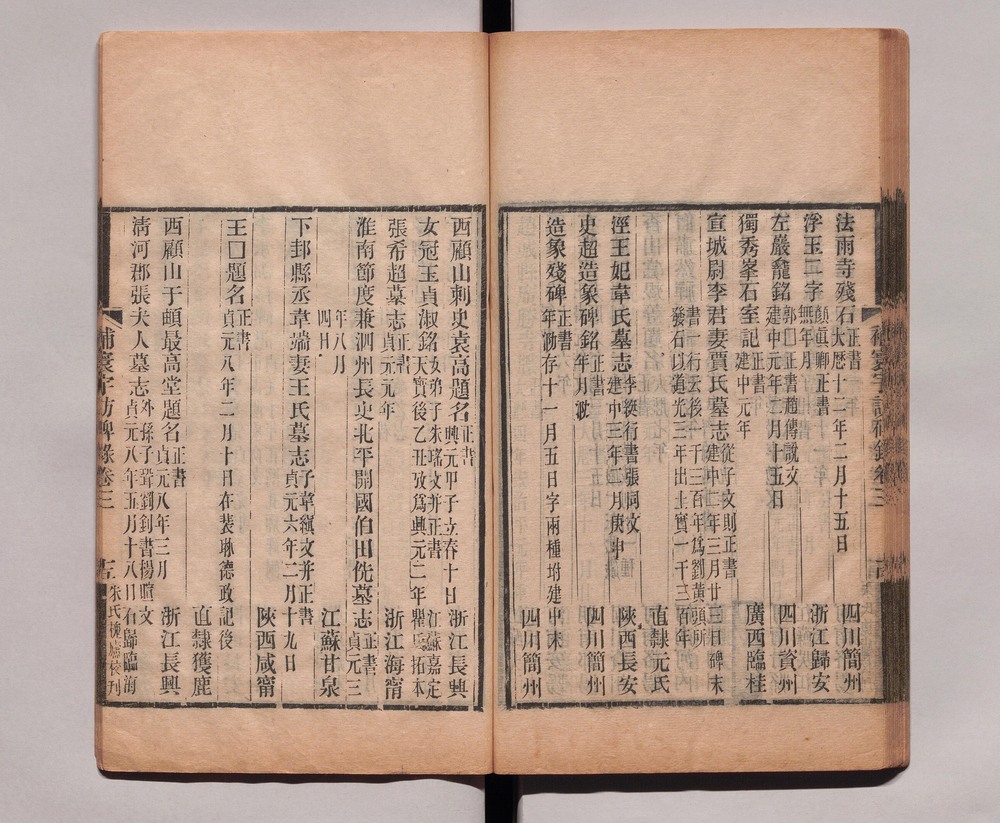 法雨寺殘石 正書 大歷十二年二月十五日 四川簡州
浮玉二字 顏真卿正書 無年月 浙江歸安
左巖龕銘 郭囗正書趙傳說文 建中元年二月十五日 四川資州
獨秀峯石室記 正書 建中元年 廣西臨桂
宣城尉李君妻賈氏墓志 從子文則正書 建中二年三月廿三日碑末
書一行云後一千三百年爲劉黃頭所
發石以道光三年出土實一千三百年 直隸元氏
涇王妃韋氏墓志 李縱行書張同文 建中三年二月庚申 陝西長安
史超造象碑銘 正書 年月泐 四川簡州
造象殘碑 正書 年泐存十一月五日字兩種坿建中末 四川簡州
西顧山刺史袁高題名 正書 興元甲子立春十日 浙江長興
女冠王貞淑銘 女弟子朱瑤文并正書 天寶後乙丑攷爲興元二年 江蘇嘉定瞿氏拓本
張希超墓志 正書 貞元元年 浙江海甯
淮南節度兼泗州長史北平開國伯田侁墓志 正書 貞元三
年八月
四日 江蘇甘泉
下邽縣丞韋端妻王氏墓志 子韋縝文并正書 貞元六年二月十九日 陝西咸甯
王囗題名 正書 貞元八年二月十日在裴琳德政記後 直隸獲鹿
西顧山于頔最高堂題名 正書 貞元八年三月 浙江長興
淸河郡張夫人墓志 外孫子聟鐗釗書楊暄文 貞元八年五月十八日石歸臨海
補寰宇訪碑錄卷三
朱氏槐廬校刊